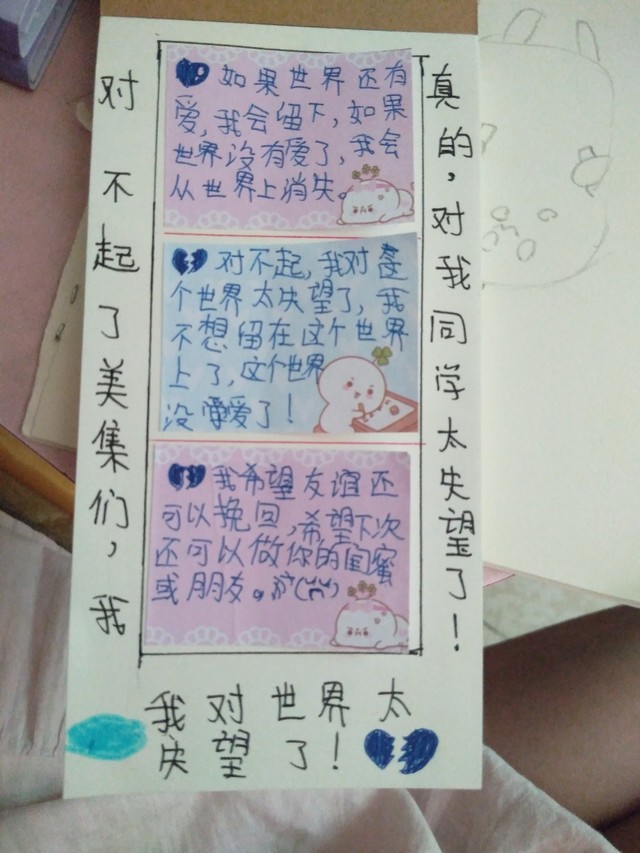 对不起了美集们，我
如果世界还有
爱，我会留下，如果
世界没有爱了，我会
从世界上消失。
对不起，我对这
个世界太失望了，我
不想留在这个世界
上了，这个世界
没爱了！
我希望友谊还
可以挽回，希望下次
还可以做你的闺蜜
或朋友。
真的，对我同学太失望了！
我对世界太
失望了！